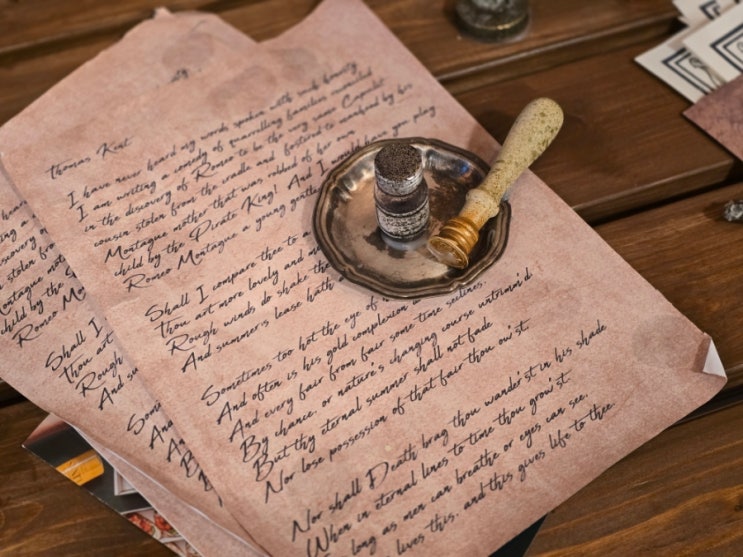 Thomas Kent
I have never heard my words spoken with such beauty
I am writing a comedy of quarrelling families reunited
in the discovery of Romeo to be the very same Capulet
cousin stolen from the cradle and fostered to manhood by his
Montague mother that was robbed of her own
child by the Pirate King! And I would have you play
Romeo Montague a young gentle
Shall I compare thee to a
Thou art more lovely and mo
Rough winds do shake the
And summer's lease hath
Sometimes too hot the eye of
And often is his gold complexion
And every fair from fair some time declines,
By chance, or nature's changing course untrimm'd:
But thy eternal summer shall not fade
Nor lose possession of that fair thou ow'st,
Nor shall Death brag thou wander'st in his shade
When in eternal lines to time thou grow'st
long as men can breathe or eyes can see,
lives this, and this gives life to thee.
Romeo Mo
Shall I
Thou art
Rough
And su